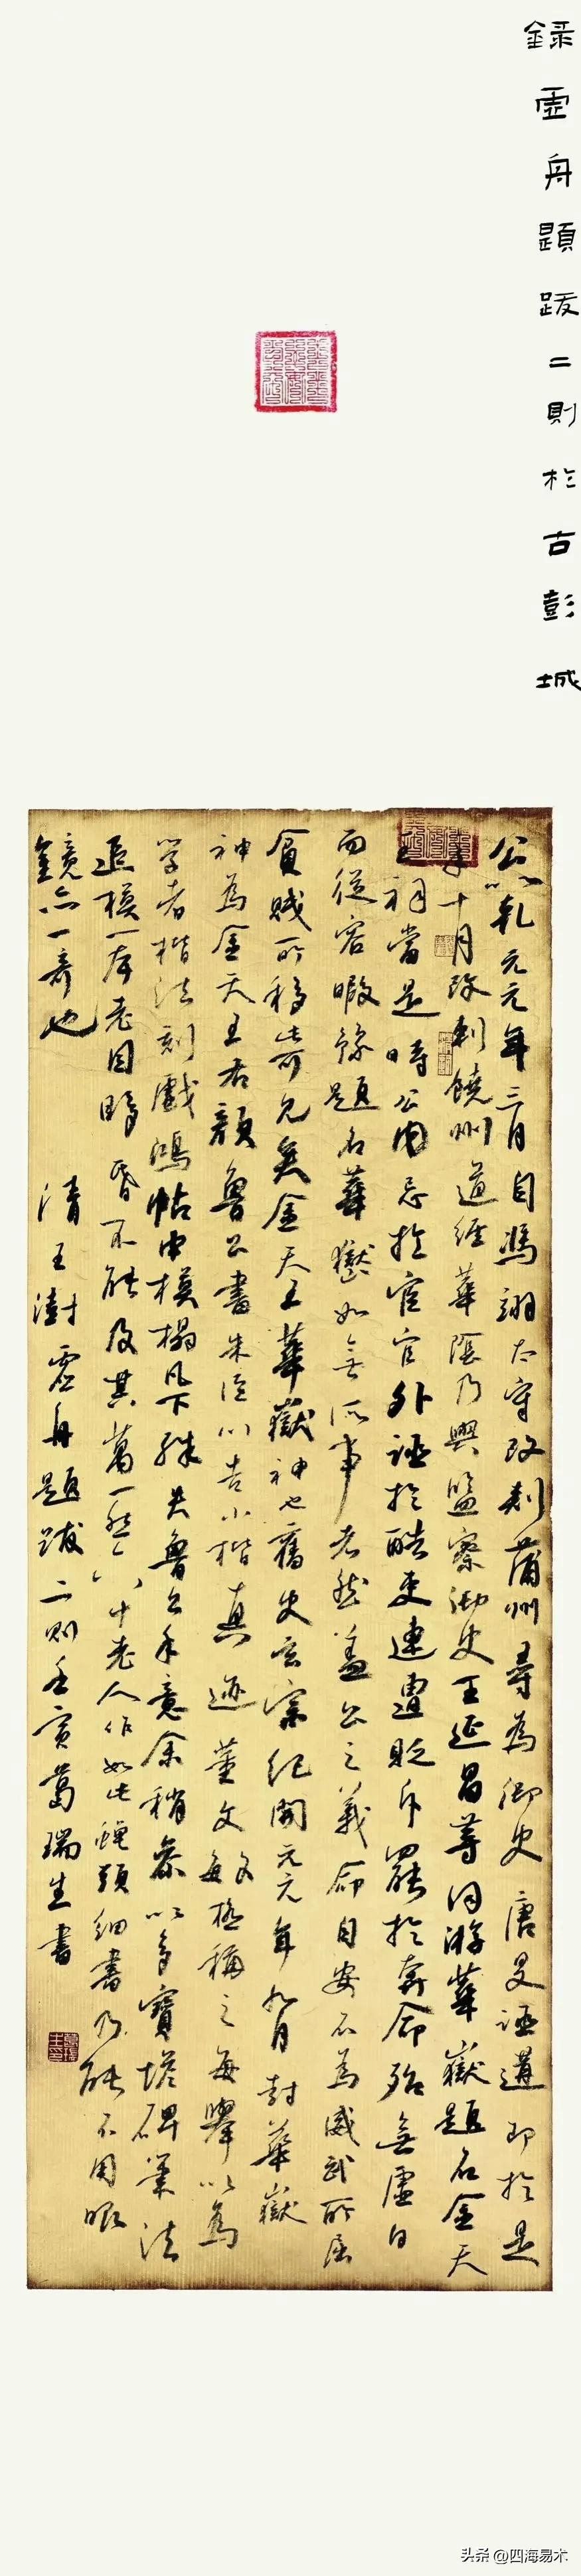 録虚舟題跋二則於古彭城
公以乹元元年三月自馮翊太守改刺蒲州尋為御史唐旻誣遘即於是
年十月改刺饒州道經華陰乃與監察御史王延昌等同游華嶽題名金天
王祠當是時公內忌於宦官外誣於酷吏連遭貶斥罷於奔命殆無虛日
而從容暇豫題名華嶽如無所事者然蓋公之義命自安不為威武所屈
貧賤所移奇見矣金天王華嶽神也舊史玄宗紀開元元年九月封華嶽
神為金天王右顏魯公書朱巨川告小楷真迹董文敏極稱之每舉以為
學者楷法刻戲鴻帖中模榻凡下殊失魯公手意余稍參以多寶塔碑筆法
追模一本老目眵昏不能及其萬一然六十老人作如此蠅頭細書乃能不用眼
鏡亦一奇也 清王澍虛舟題跋二則壬寅葛瑞生書
头条 @四海易木